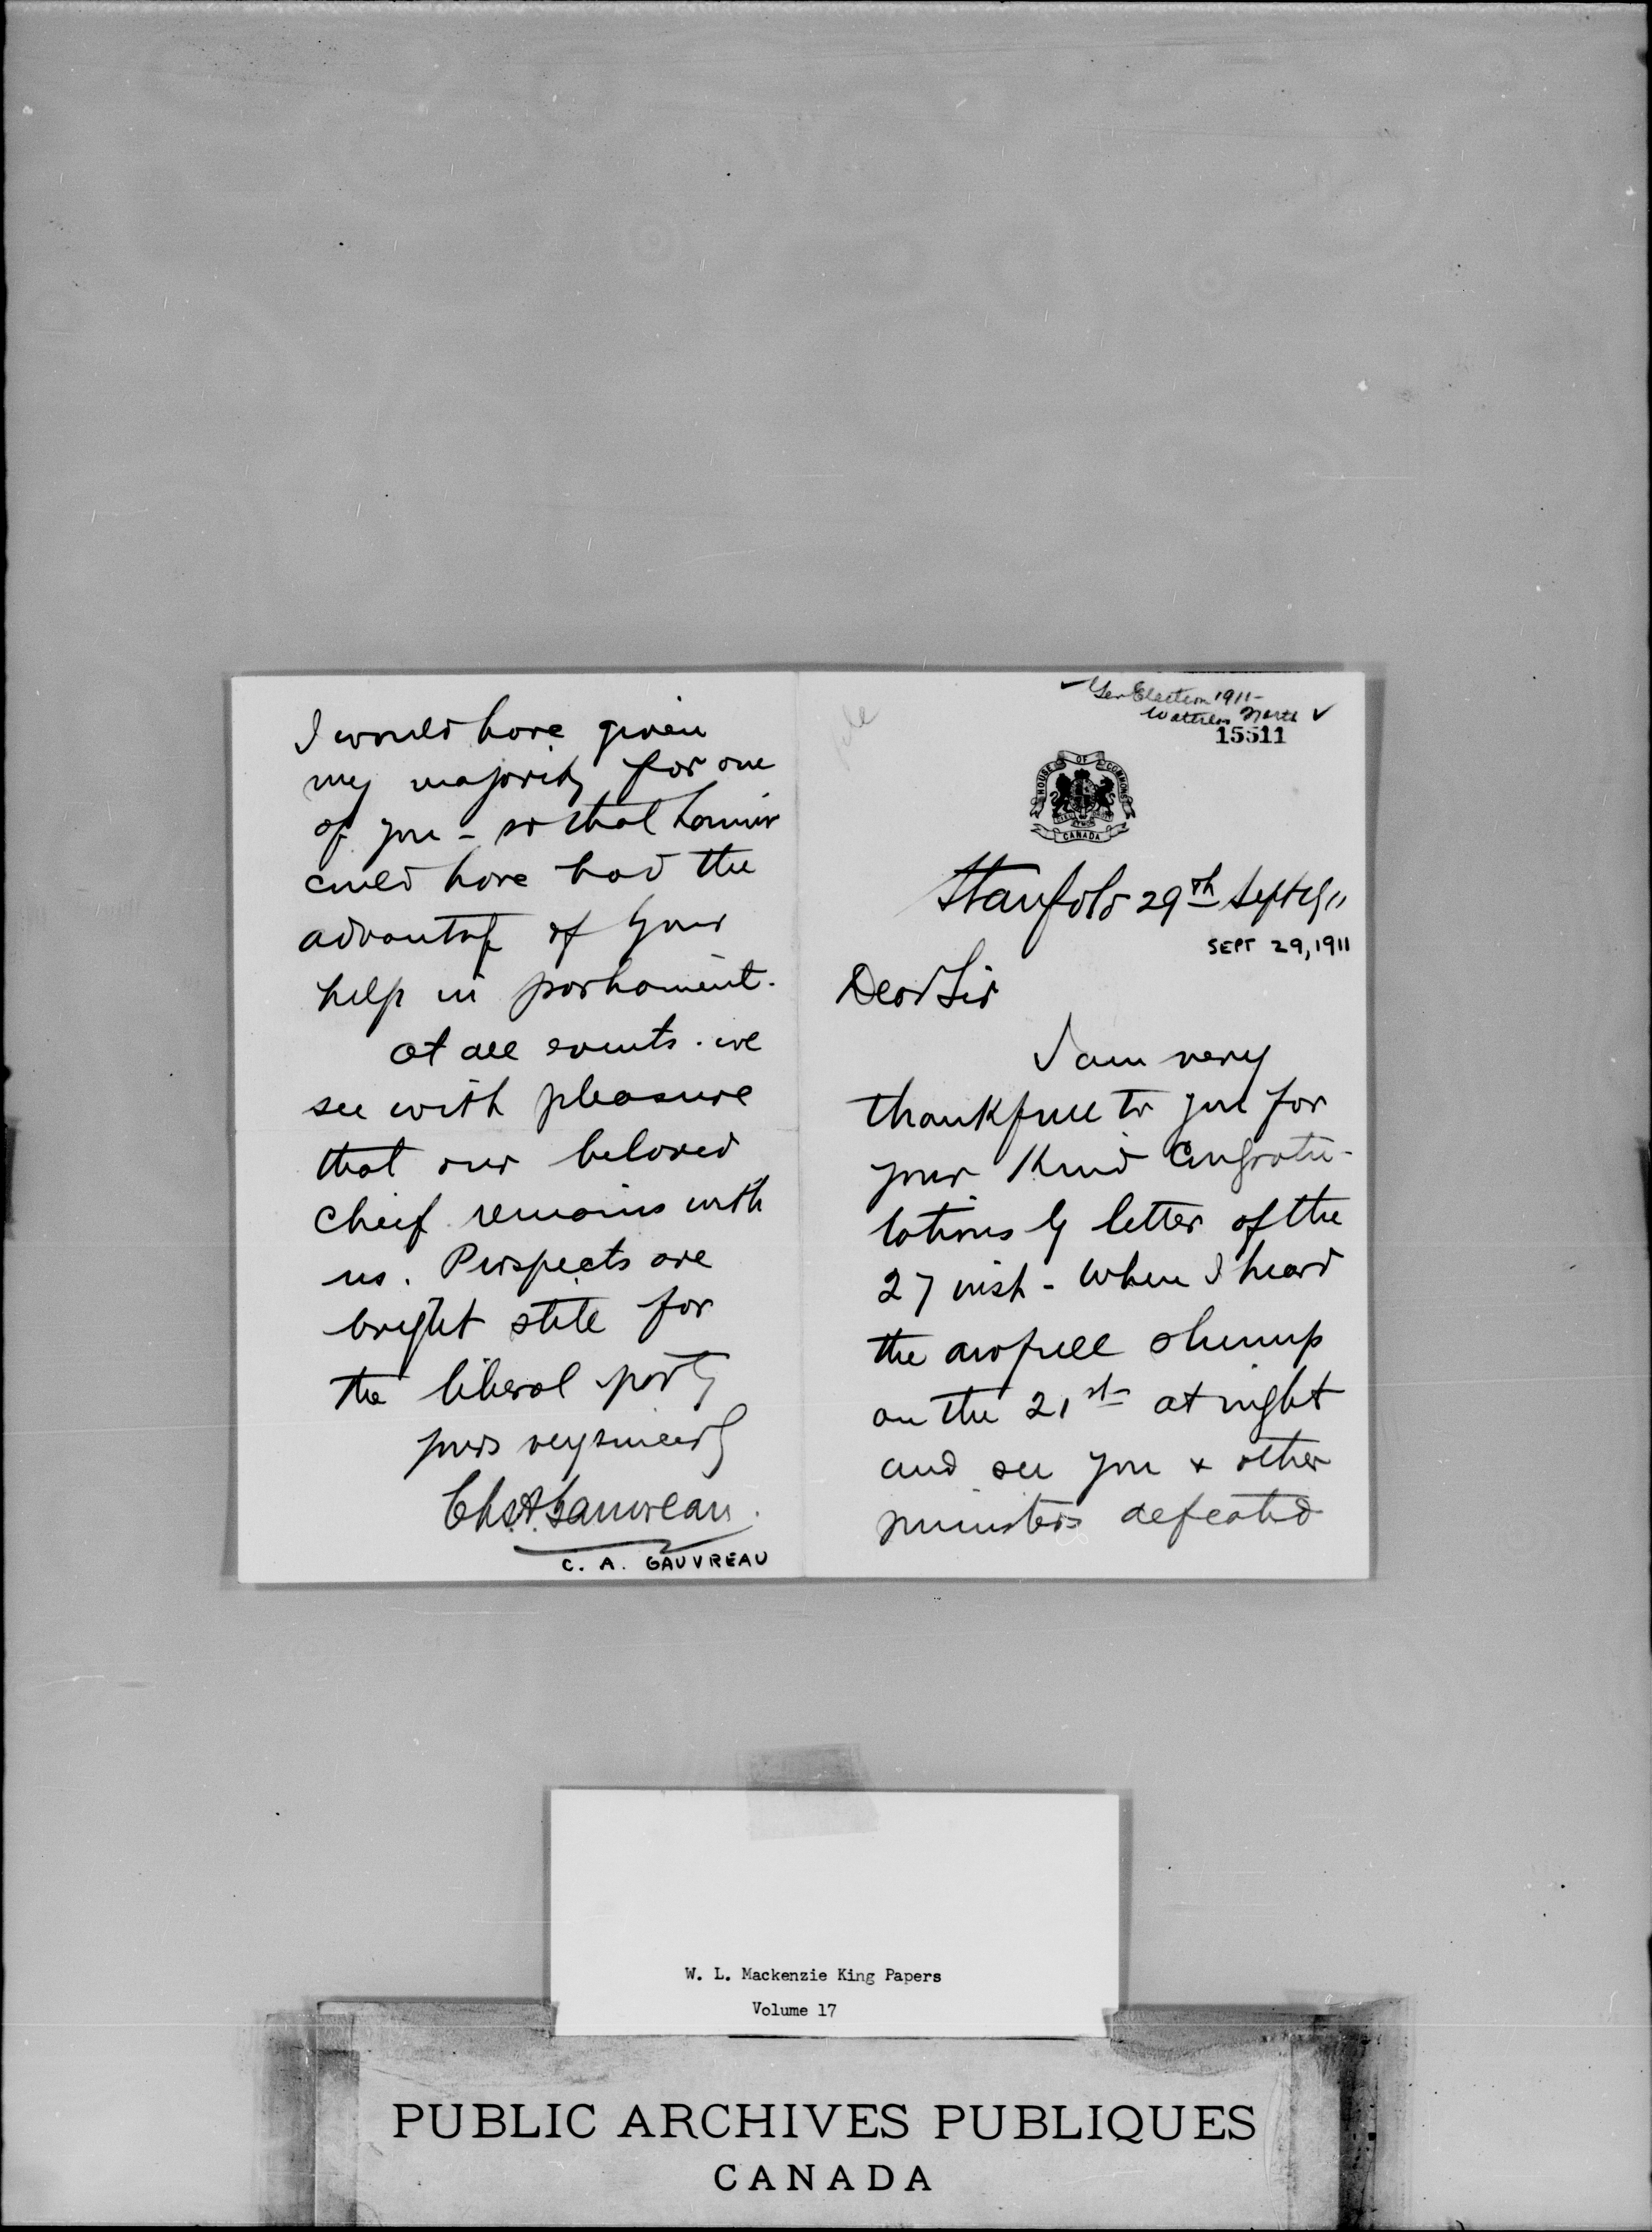 ✓ Gen Election 1911-
Waterloo North ✓
15511
file
HOUSE OF COMMONS
CANADA
Stanfold 29th Sept 1911
SEPT 29, 1911
Dear Sir
I am very
thankfull to you for
your kind congratu-
lations by letter of the
27 inst - When I heard
the awfull slump
on the 21st at night
and see you & other
ministers defeated
I would have given
my majority for one
of you - so that
could have had the
advantage of your
help in parliament.
At all events. we
see with pleasure
that our beloved
cheif remains with
us. Prospects are
bright still for
the liberal party
yours very sincerely
Chs A. Gauvreau.
C. A. GAUVREAU
W. L. Mackenzie King Papers
Volume 17
PUBLIC ARCHIVES PUBLIQUES
CANADA